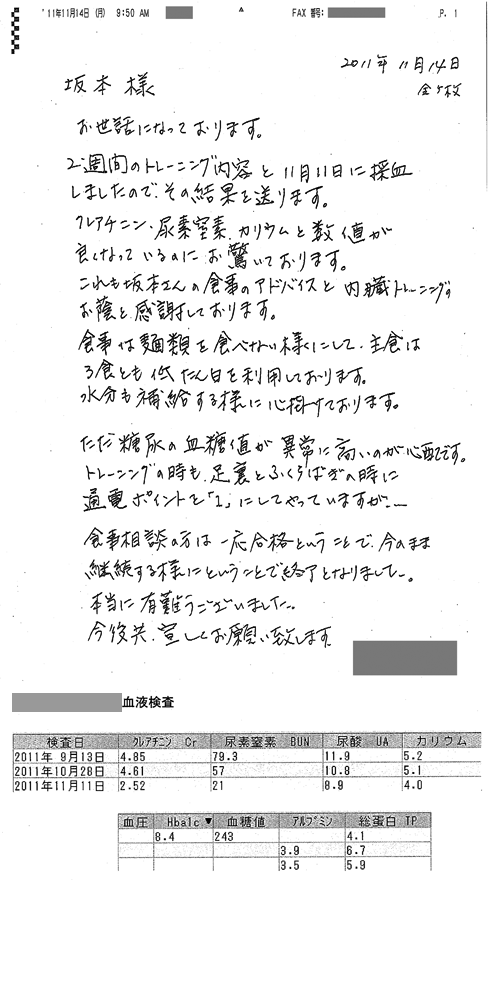 '11年11月14日 (月) 9:50 AM FAX 番号: P. 1
2011年 11月14日
全5枚
坂本 様
お世話になっております。
2週間のトレーニング内容と 11月11日に採血
しましたので、その結果を送ります。
クレアチニン・尿素窒素、カリウムと数値が
良くなっているのに お驚いております。
これも坂本さんの食事のアドバイスと 内臓トレーニングの
お蔭と感謝しております。
食事は麺類を食べない様にして、主食は
3食とも低たん白を利用しております。
水分も補給する様に心掛けております。
ただ糖尿の血糖値が異常に高いのが心配です。
トレーニングの時も、足裏とふくらはぎの時に
通電ポイントを「1」にしてやっていますが…
食事相談の方は一応合格ということで、今のまま
継続する様にということで終了となりました。
本当に有難うございました。
今後共、宜しくお願い致します
血液検査
検査日 クレアチニン Cr 尿素窒素 BUN 尿酸 UA カリウム
2011年 9月13日 4.85 79.3 11.9 5.2
2011年10月28日 4.61 57 10.8 5.1
2011年11月11日 2.52 21 8.9 4.0
血圧 Hba1c▼ 血糖値 アルブミン 総蛋白 TP
8.4 243 4.1
3.9 6.7
3.5 5.9